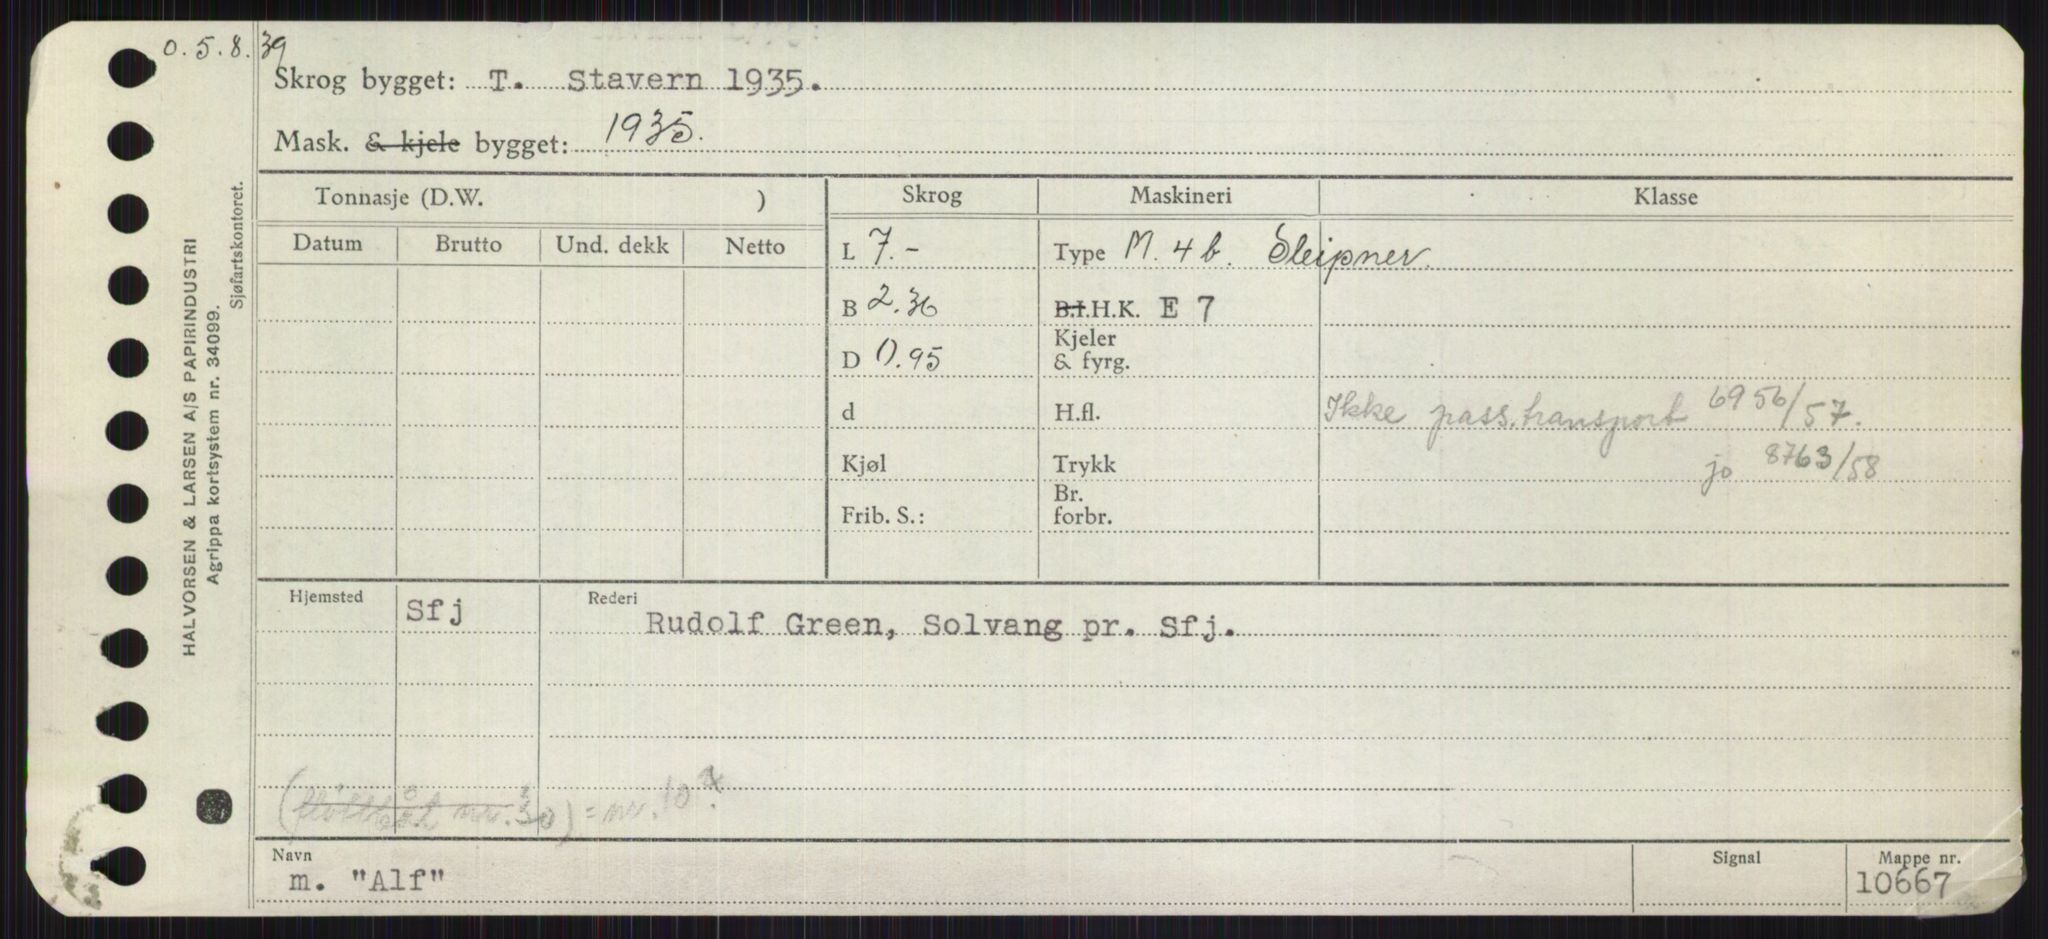 0.5.8.39
Skrog bygget: T. Stavern 1935.
Mask. & kjele bygget: 1935.
HALVORSEN & LARSEN A/S PAPIRINDUSTRI
Agrippa kortsystem nr. 34099.
Sjøfartskontoret.
Tonnasje (D.W. ) Skrog Maskineri Klasse
Datum Brutto Und. dekk Netto
L 7.- Type M. 4 b. Sleipner.
B 2.36 B.I.H.K. E 7
D 0.95 Kjeler & fyrg.
d H.fl. Ikke pass.transport 6956/57.
Kjøl Trykk jo 8763/58
Frib. S.: Br. forbr.
Hjemsted Sfj Rederi Rudolf Green, Solvang pr. Sfj.
(fløttbåt nr. 30) = nr. 10
Navn Signal Mappe nr.
m. "Alf" 10667